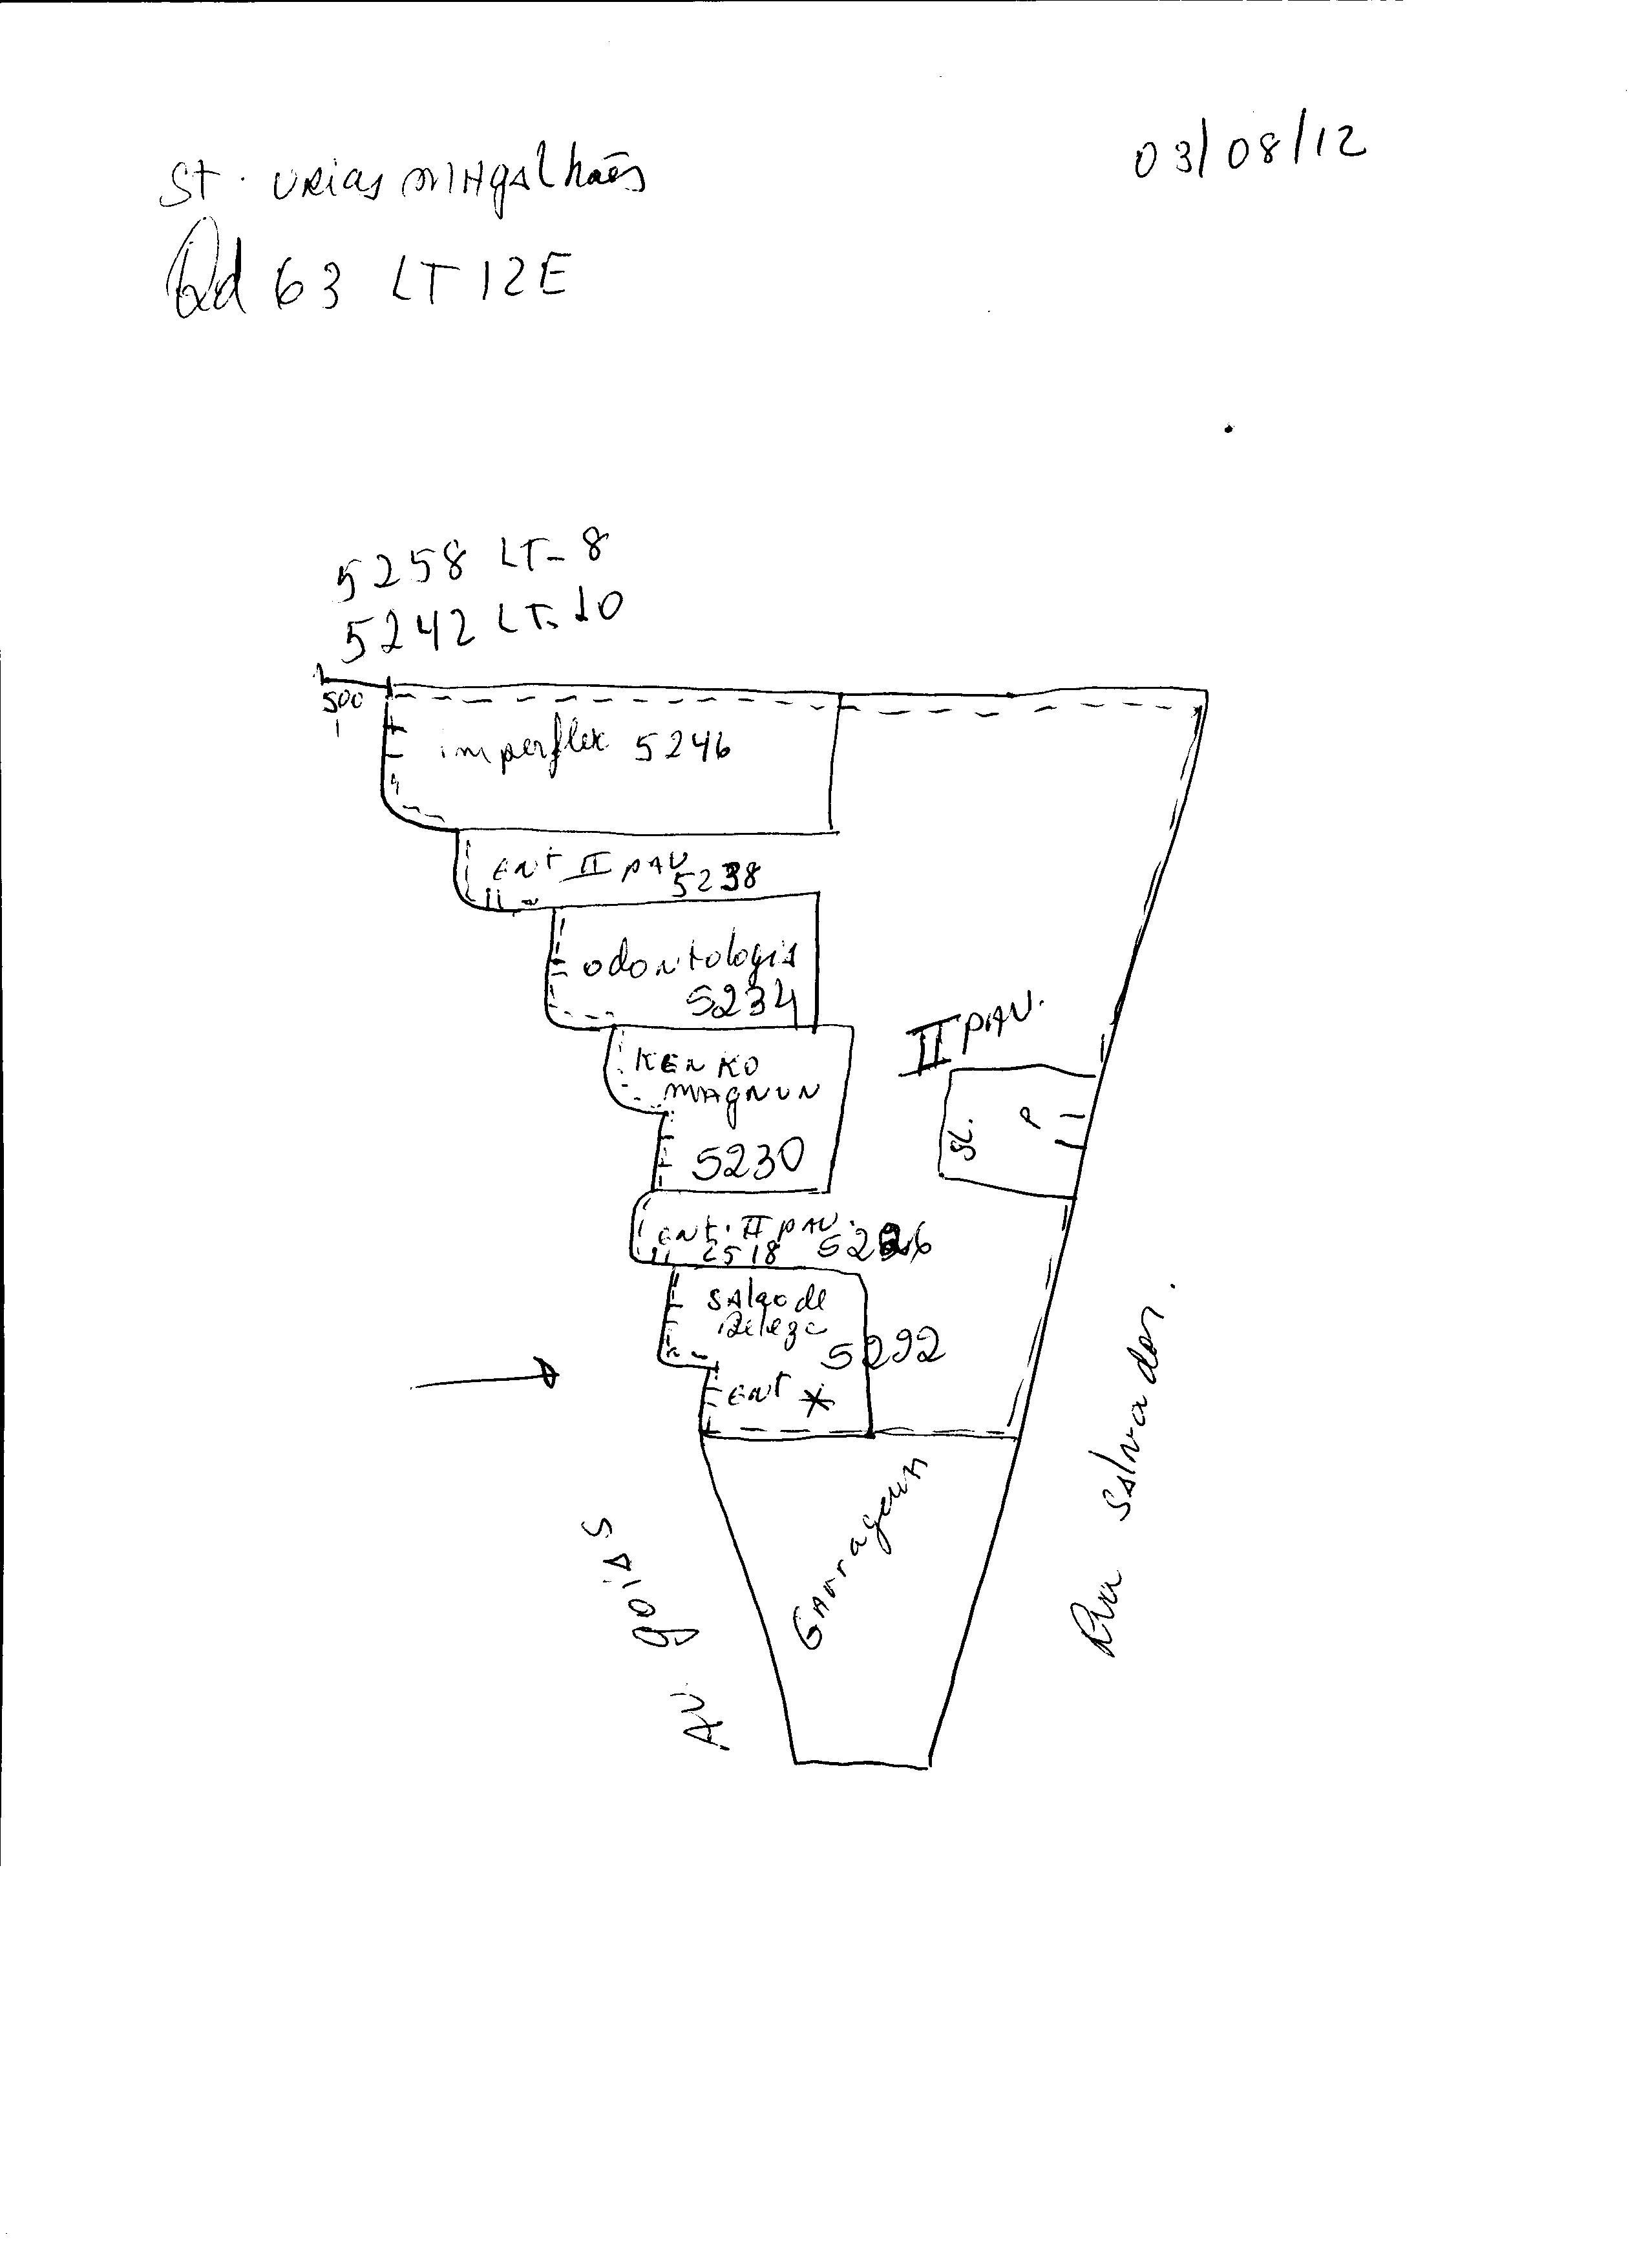 03/08/12
St. URIAS MAgAlhães
Qd 63 LT 12E
5258 LT- 8
5242 LT- 10
500
imperflex 5246
ENT II PAV
5238
odontologia
5234
KENKO
MAGNUN
5230
II PAV.
SL. P
ENT. II PAV.
5226
SALÃO de
Beleza
5292
ENT *
Garragem
AV goiAS
Rua Salvador.